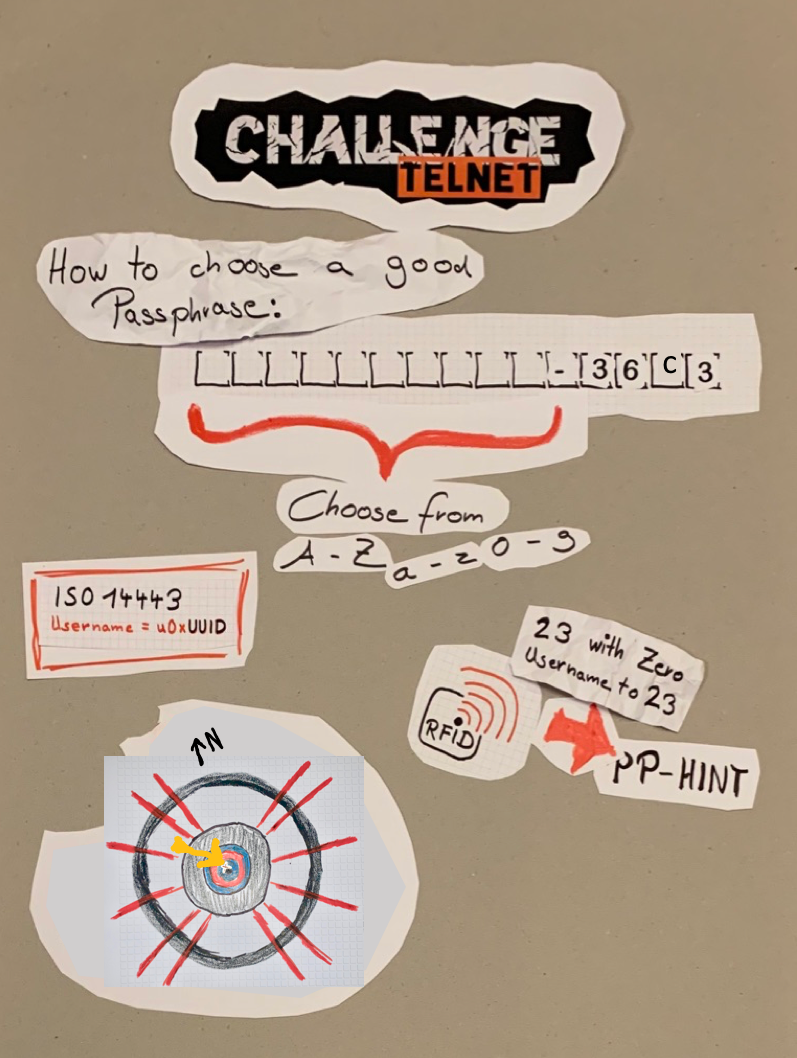 CHALLENGE
TELNET
How to choose a good
Passphrase:
- 3 6 C 3
Choose from
A - Z a - z 0 - 9
ISO 14443
Username = u0xUUID
23 with Zero
Username to 23
RFiD
PP-HINT
N